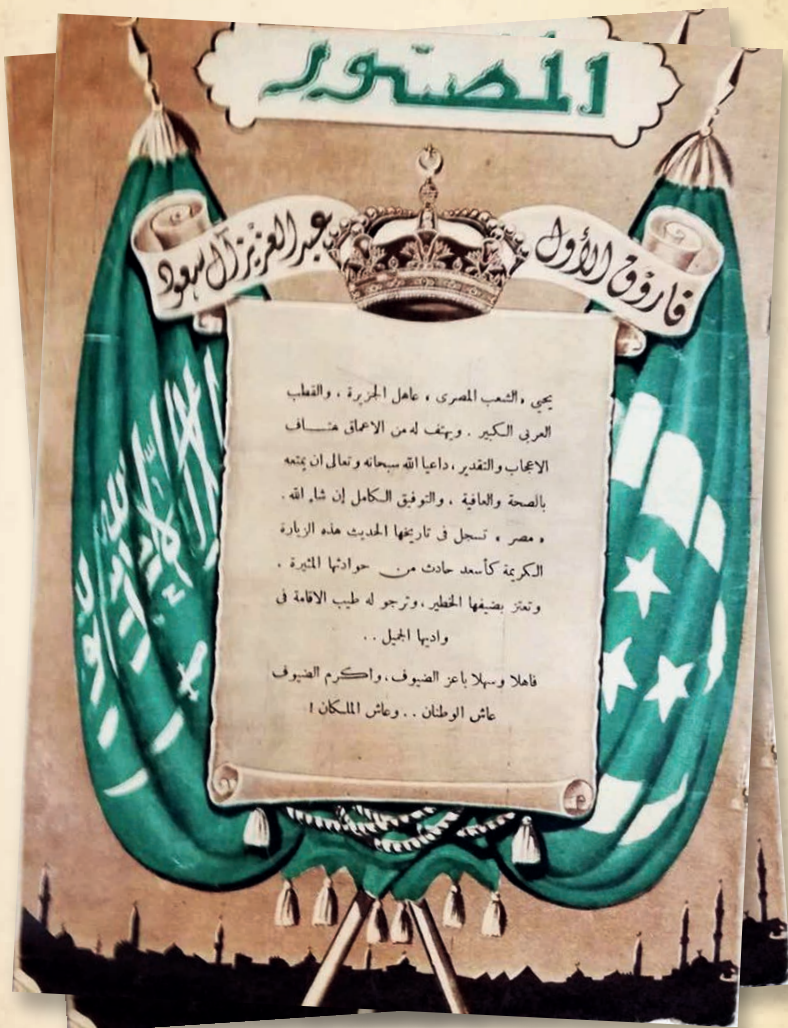 المصور
فاروق الأول
عبد العزيز آل سعود
يحيي « الشعب المصرى » عاهل الجزيرة ، والقطب
العربى الكبير . ويهتف له من الاعماق هتاف
الاعجاب والتقدير ، داعيا الله سبحانه وتعالى ان يمتعه
بالصحة والعافية ، والتوفيق الكامل إن شاء الله .
« مصر » تسجل فى تاريخها الحديث هذه الزيارة
الكريمة كأسعد حادث من حوادثها المثيرة .
وتعتز بضيفها الخطير ، وترجو له طيب الاقامة فى
واديها الجميل . .
فاهلا وسهلا باعز الضيوف ، واكرم الضيوف
عاش الوطنان . . وعاش الملكان !